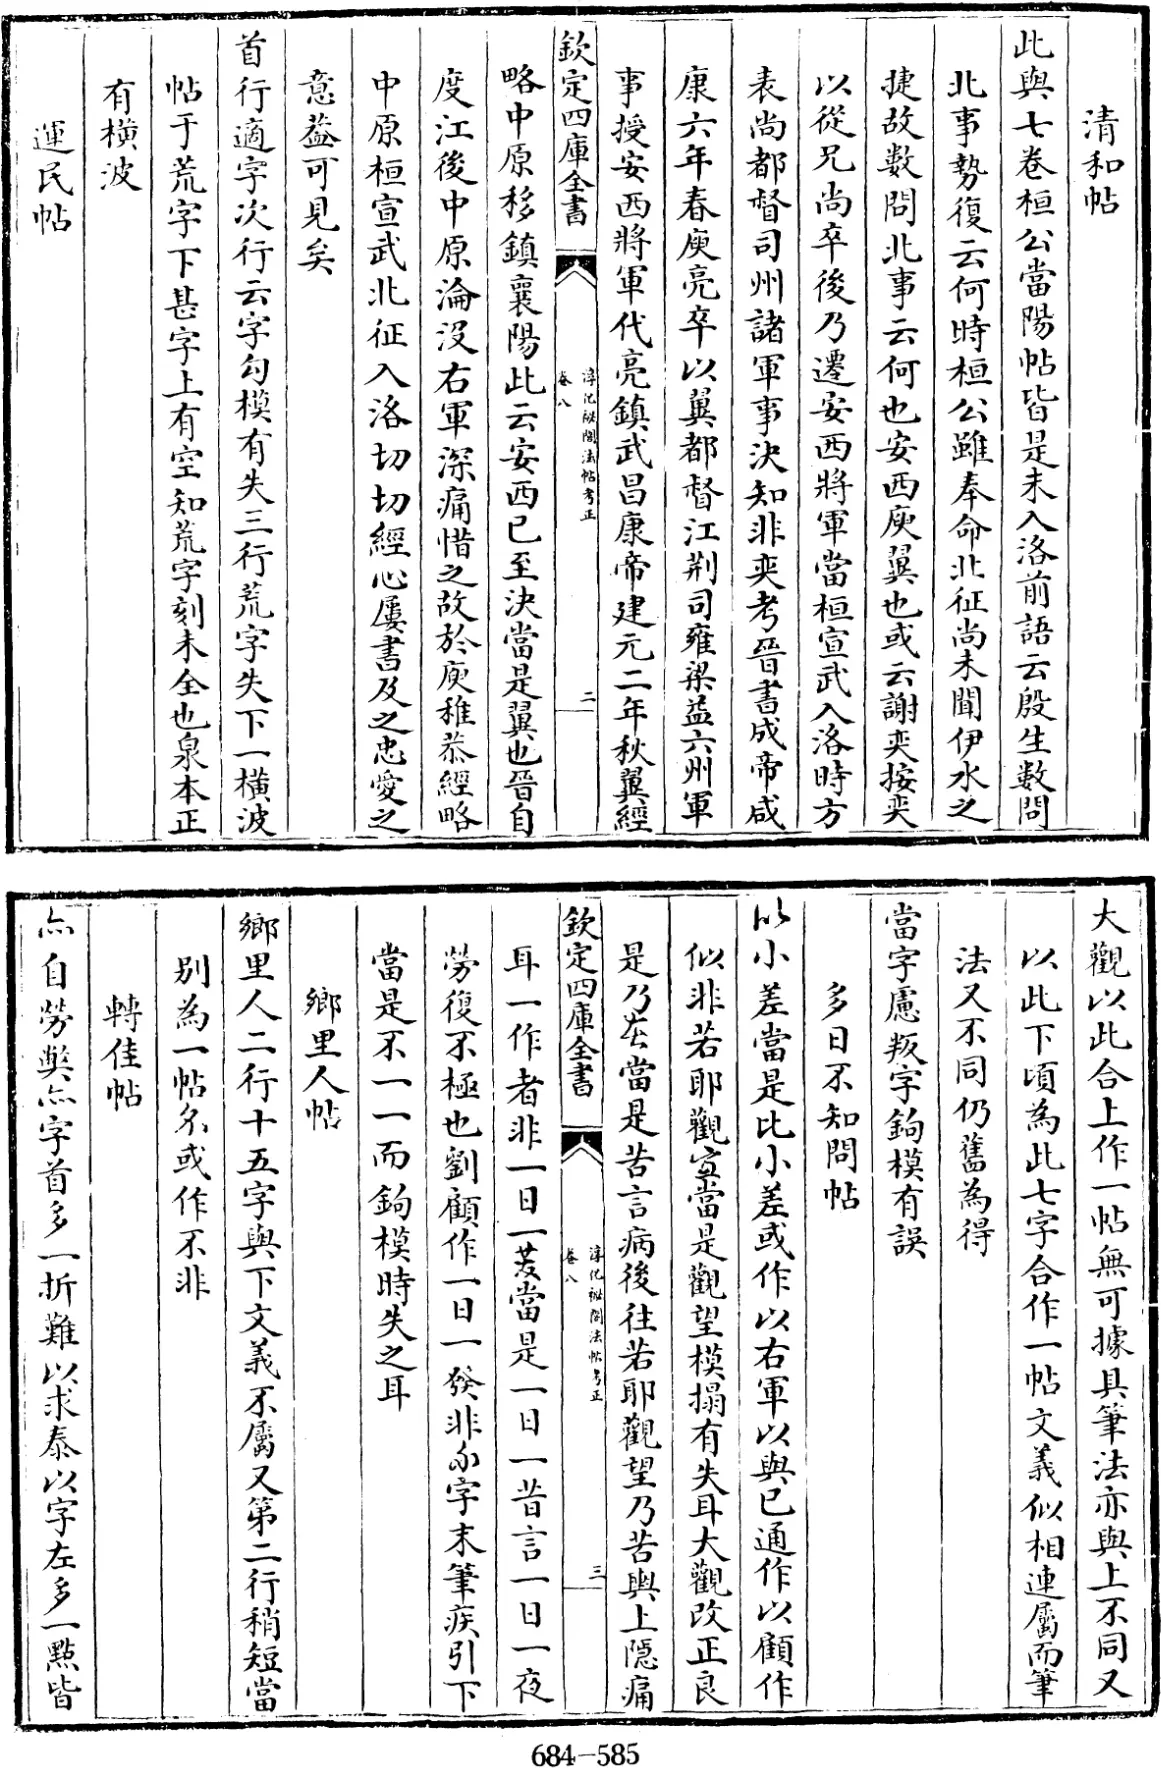 清和帖
此與七卷桓公當陽帖皆是未入洛前語云殷生數問
北事勢復云何時桓公雖奉命北征尚未聞伊水之
捷故數問北事云何也安西庾翼也或云謝奕按奕
以從兄尚卒後乃遷安西將軍當桓宣武入洛時方
表尚都督司州諸軍事決知非奕考晉書成帝咸
康六年春庾亮卒以翼都督江荆司雍梁益六州軍
事授安西將軍代亮鎮武昌康帝建元二年秋翼經
欽定四庫全書
淳化祕閣法帖考正
卷八
二
略中原移鎮襄陽此云安西已至決當是翼也晉自
度江後中原淪沒右軍深痛惜之故於庾稚恭經略
中原桓宣武北征入洛切切經心屢書及之忠愛之
意葢可見矣
首行適字次行云字勾模有失三行荒字失下一橫波
帖于荒字下甚字上有空知荒字刻未全也泉本正
有橫波
運民帖
大觀以此合上作一帖無可據具筆法亦與上不同又
以此下頃為此七字合作一帖文義似相連屬而筆
法又不同仍舊為得
當字慮叛字鉤模有誤
多日不知問帖
小差當是比小差或作以右軍以與已通作以顧作
似非若耶觀當是觀望模搨有失耳大觀改正良
是乃當是苦言病後往若耶觀望乃苦與上隱痛
欽定四庫全書
淳化祕閣法帖考正
卷八
三
耳一作者非一日一當是一日一昔言一日一夜
勞復不極也劉顧作一日一發非尒字末筆疾引下
當是不一一而鉤模時失之耳
鄉里人帖
鄉里人二行十五字與下文義不屬又第二行稍短當
別為一帖尒或作不非
轉佳帖
自勞獘字首多一折難以求泰以字左多一點皆
684-585